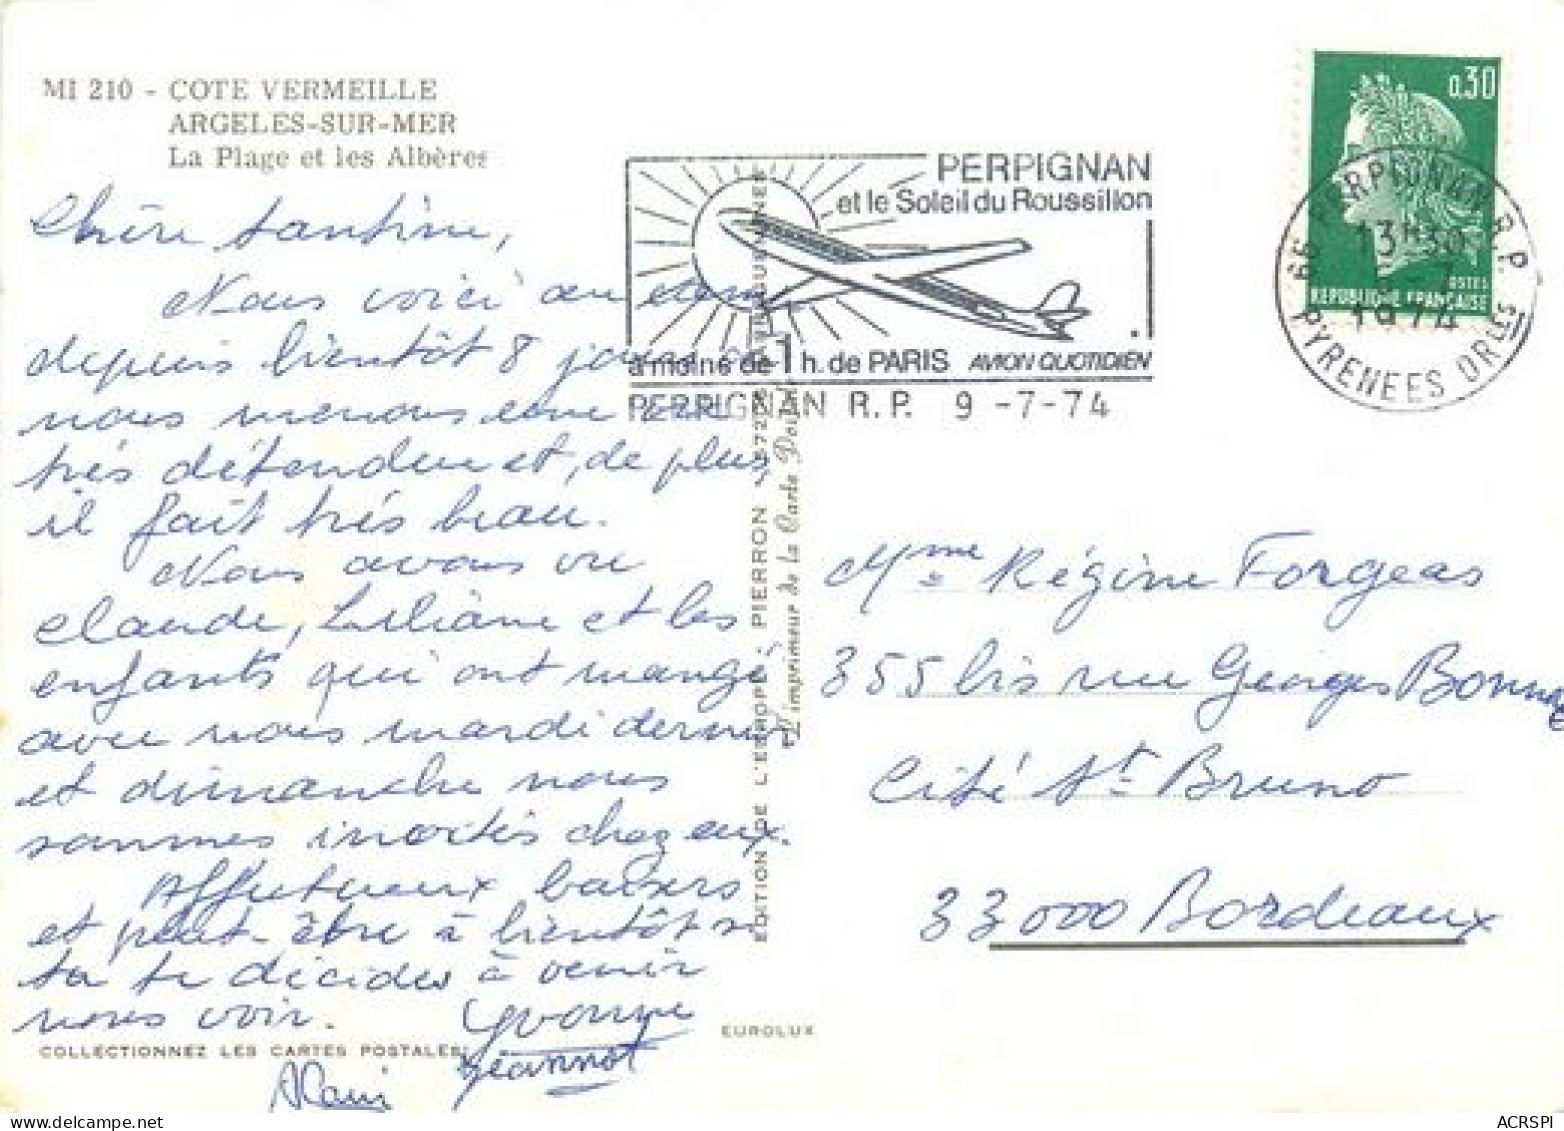 MI 210 - COTE VERMEILLE
ARGELES-SUR-MER
La Plage et les Albères
Chère tantine,
Nous voici au
depuis bientôt 8 jours
nous menons une vie
très détendue et, de plus,
il fait très beau.
Nous avons vu
Claude, Liliane et les
enfants qui ont mangé
avec nous mardi dernier
et dimanche nous
sommes invités chez eux.
Affectueux baisers
et peut-être à bientôt si
tu te décides à venir
nous voir.
Yvonne
Jeannot
Alain
COLLECTIONNEZ LES CARTES POSTALES
EUROLUX
EDITION DE L'EUROPE, PIERRON
L'imprimeur de la Carte
PERPIGNAN
et le Soleil du Roussillon
à moins de 1 h. de PARIS AVION QUOTIDIEN
PERPIGNAN R.P. 9 -7-74
0,30
POSTES
REPUBLIQUE FRANÇAISE
66 PERPIGNAN R.P.
13H30
1974
PYRENEES ORLES
Mme Régine Forgeas
355 bis rue Georges Bonnac
Cité St Bruno
33000 Bordeaux
ACRSPI